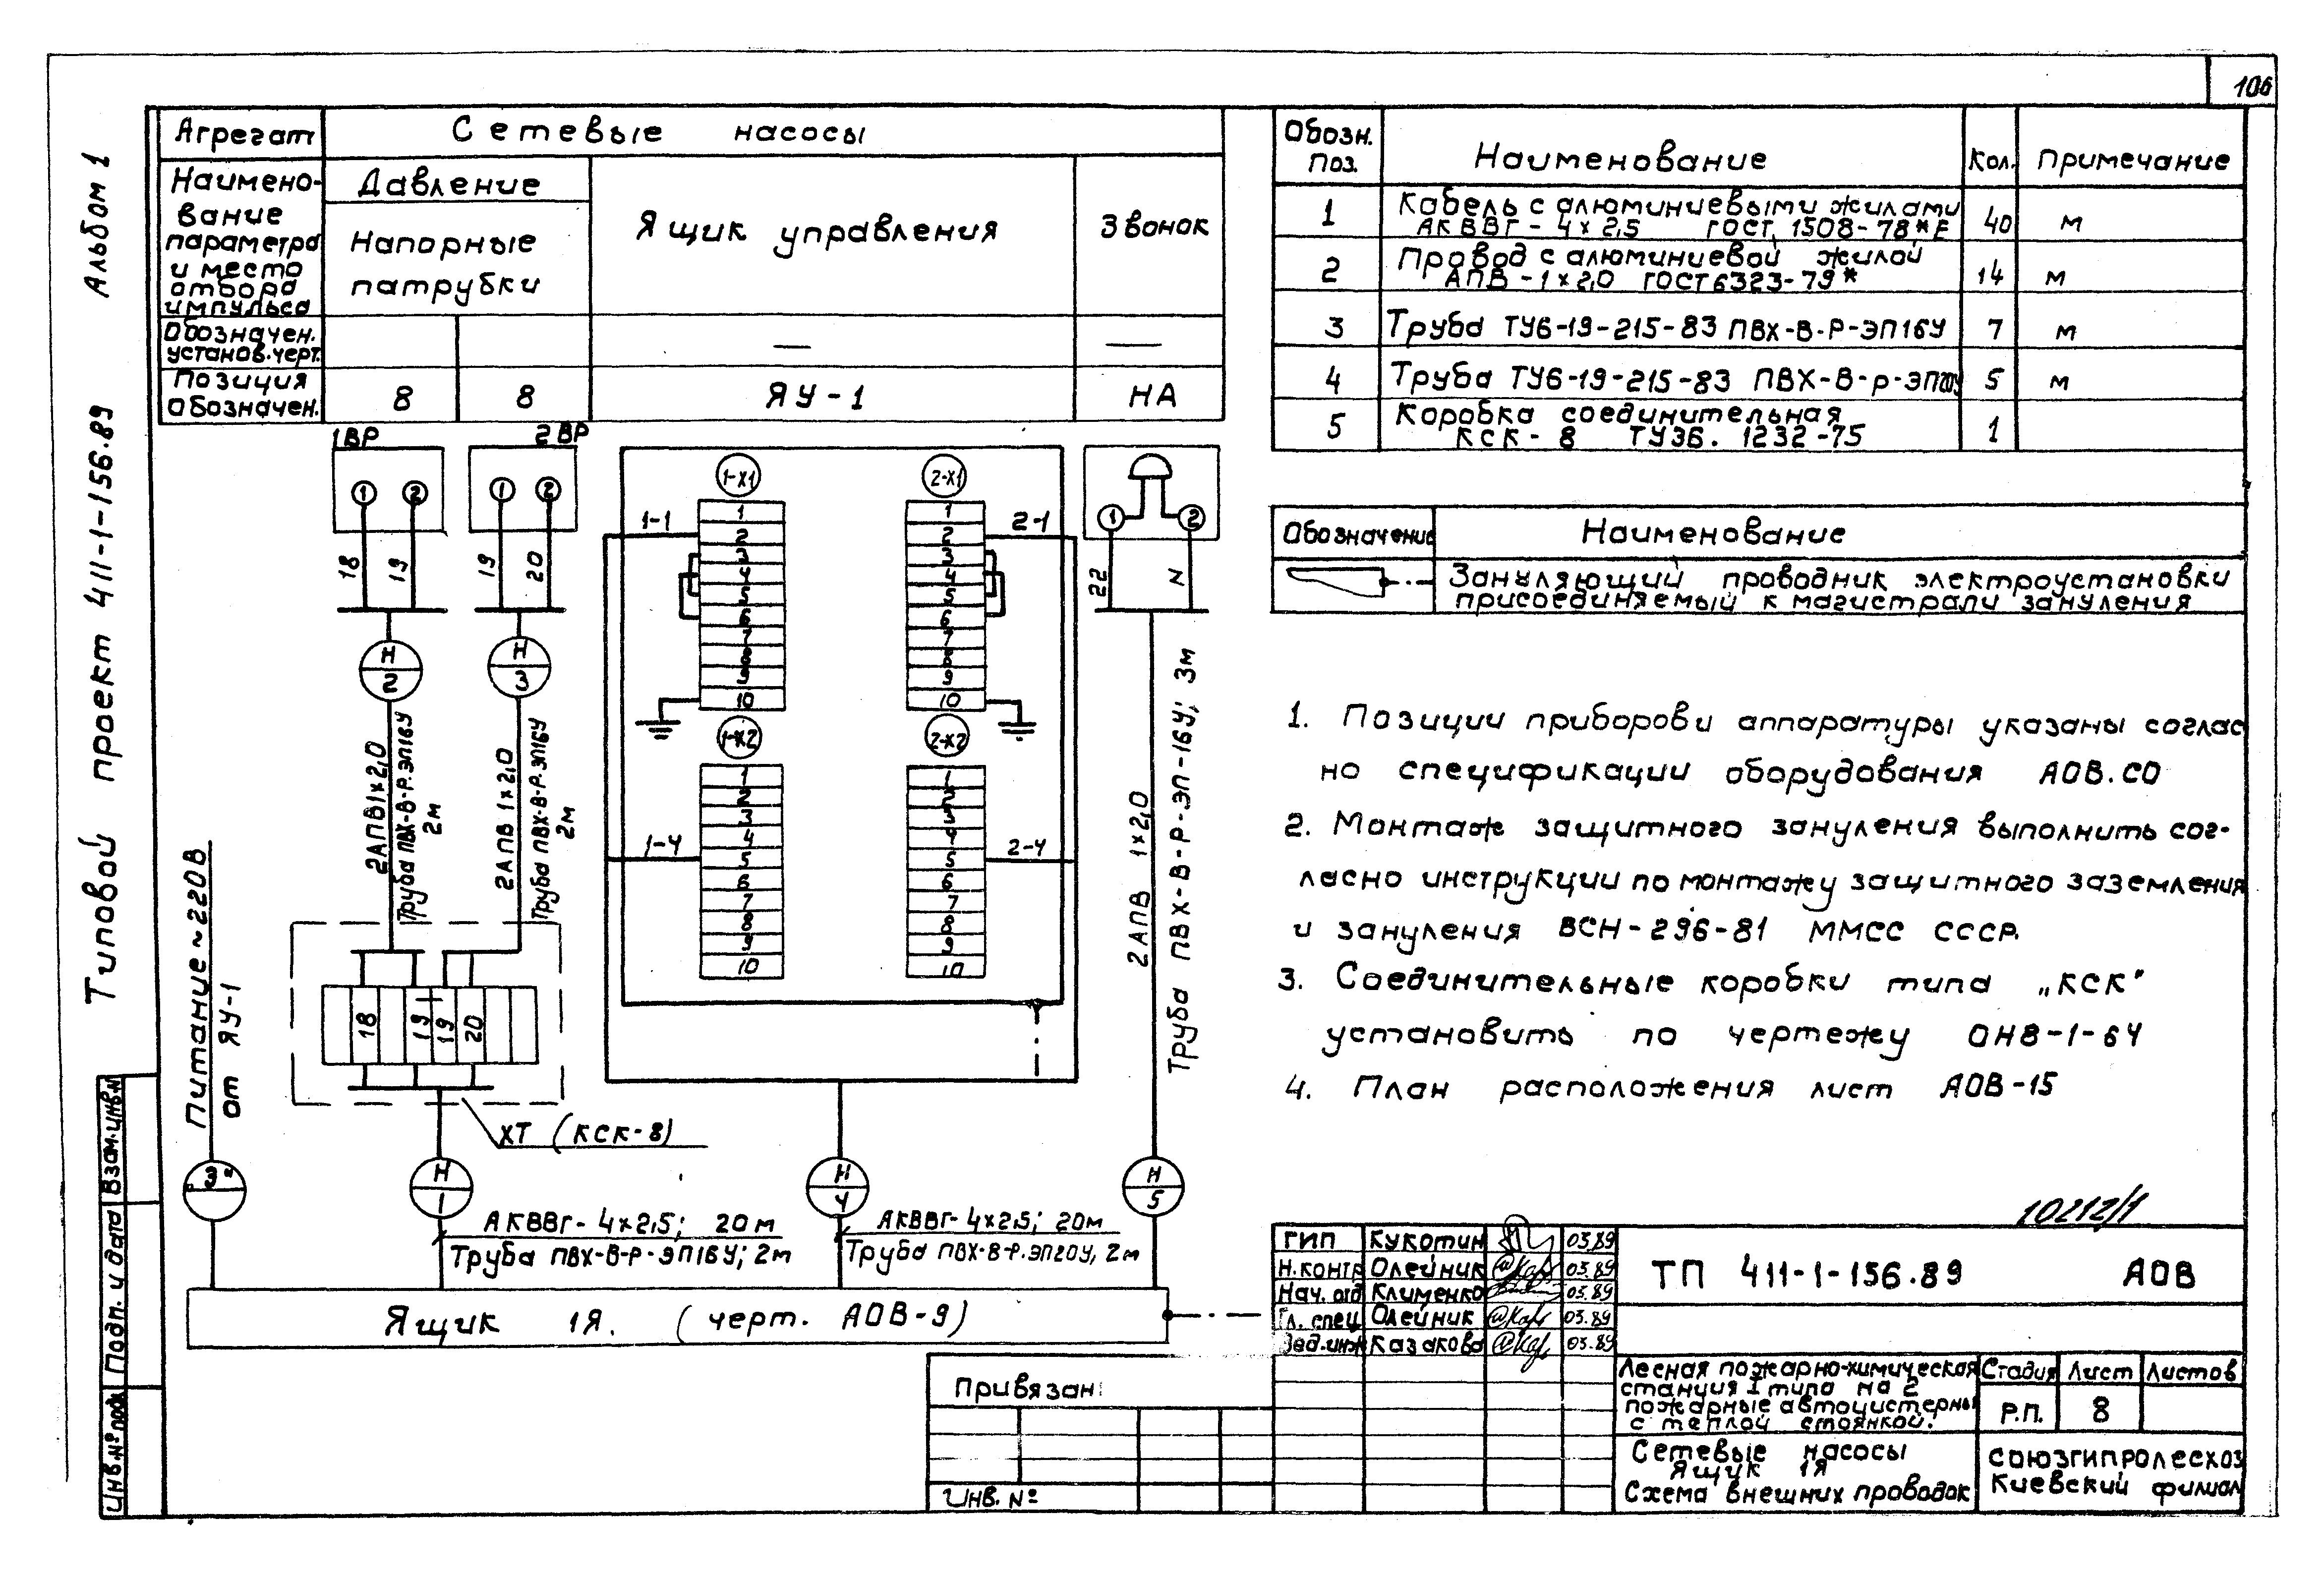 106
Альбом 1
Типовой проект 411-1-156.89
Агрегат
Сетевые насосы
Наимено-
вание
параметра
и место
отбора
импульса
Давление
Напорные
патрубки
Ящик управления
Звонок
Обозначен.
установ.черт.
—
—
Позиция
Обозначен.
8
8
ЯУ-1
НА
1ВР
2ВР
1
2
1
2
18
19
19
20
Н
2
Н
3
2АПВ1×2,0
Труба ПВХ-В-Р.ЭП16У
2м
2АПВ 1×2,0
Труба ПВХ-В-Р.ЭП16У
2м
1-Х1
1
2
3
4
5
6
7
8
9
10
2-Х1
1
2
3
4
5
6
7
8
9
10
1-1
2-1
1-Х2
1
2
3
4
5
6
7
8
9
10
2-Х2
1
2
3
4
5
6
7
8
9
10
1-4
2-4
1
2
22
N
2АПВ 1×2,0
Труба ПВХ-В-Р-ЭП-16У; 3м
Питание~220В
от ЯУ-1
18
19
19
20
ХТ (КСК-8)
Н
1
Н
4
Н
5
АКВВГ-4×2,5; 20м
Труба ПВХ-В-Р-ЭП16У; 2м
АКВВГ-4×2,5; 20м
Труба ПВХ-В-Р.ЭП20У, 2м
Ящик 1Я. (черт. АОВ-9)
Обозн.
Поз.
Наименование
Кол.
Примечание
1
Кабель с алюминиевыми жилами
АКВВГ-4×2,5 ГОСТ 1508-78*Е
40
м
2
Провод с алюминиевой жилой
АПВ-1×2,0 ГОСТ6323-79*
14
м
3
Труба ТУ6-19-215-83 ПВХ-В-Р-ЭП16У
7
м
4
Труба ТУ6-19-215-83 ПВХ-В-Р-ЭП20У
5
м
5
Коробка соединительная
КСК-8 ТУ36. 1232-75
1
Обозначение
Наименование
Зануляющий проводник электроустановки
присоединяемый к магистрали зануления
1. Позиции приборов и аппаратуры указаны соглас
но спецификации оборудования АОВ.СО
2. Монтаж защитного зануления выполнить сог-
ласно инструкции по монтажу защитного заземления
и зануления ВСН-296-81 ММСС СССР.
3. Соединительные коробки типа „КСК"
установить по чертежу ОН8-1-64
4. План расположения лист АОВ-15
10212/1
ГИП Кукотин 03.89
Н.контр Олейник 03.89
Нач. отд Клименко 03.89
Гл. спец Олейник 03.89
Вед.инж Казакова 03.89
ТП 411-1-156.89 АОВ
Лесная пожарно-химическая
станция I типа на 2
пожарные автоцистерны
с теплой стоянкой.
Стадия
Лист
Листов
Р.П.
8
Сетевые насосы
Ящик 1Я
Схема внешних проводок
СОЮЗГИПРОЛЕСХОЗ
Киевский филиал
Привязан:
Инв. №
Взам.инв.№
Подп. и дата
Инв.№подл